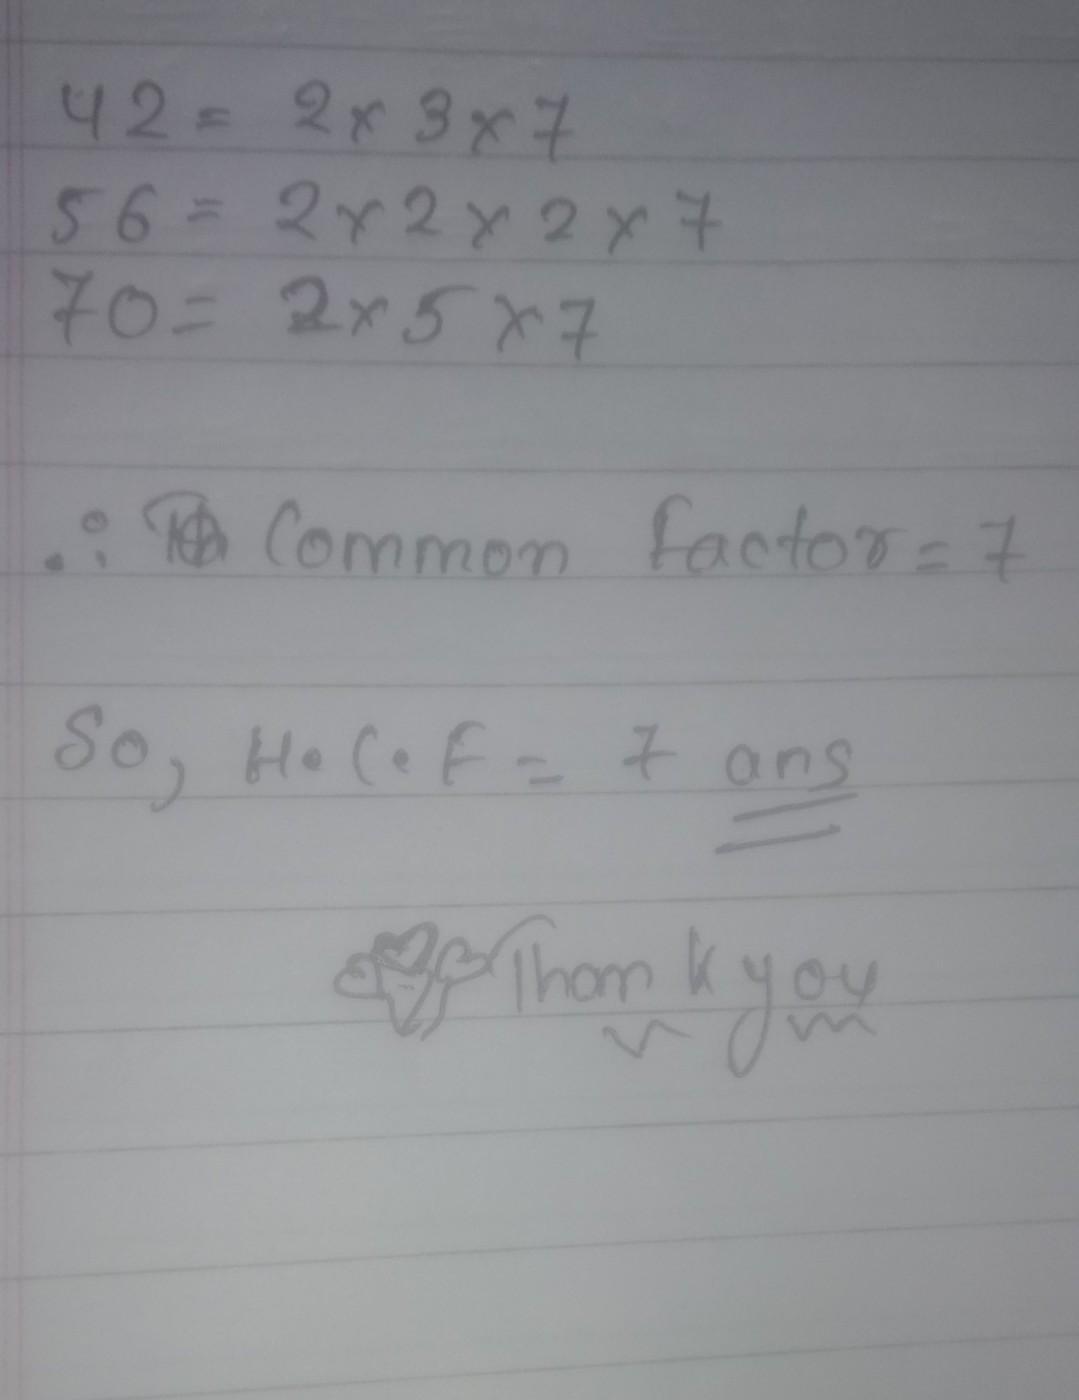 42 = 2 x 3 x 7
56 = 2 x 2 x 2 x 7
70 = 2 x 5 x 7
∴ Common factor = 7
So, H.C.F = 7 ans
Thank you